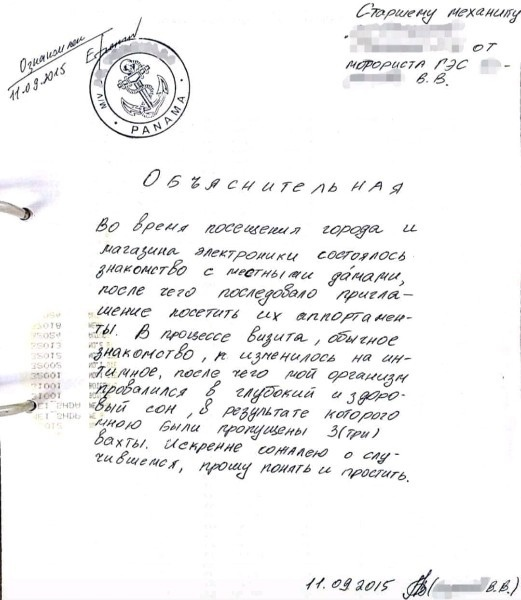 Старшему механику
от
моториста ГЭС
В. В.
Ознакомлен
11.09.2015
M/V
PANAMA
Объяснительная
Во время посещения города и
магазина электроники состоялось
знакомство с местными да́мами,
после чего последовало пригла-
шение посетить их аппортамен-
ты. В процессе визита, обычное
знакомство, изменилось на ин-
тимное, после чего мой организм
провалился в глубокий и здоро-
вый сон, в результате которого
мною были пропущены 3(три)
вахты. Искренне сожалею о слу-
чившемся, прошу понять и простить.
11.09.2015 ( В.В.)